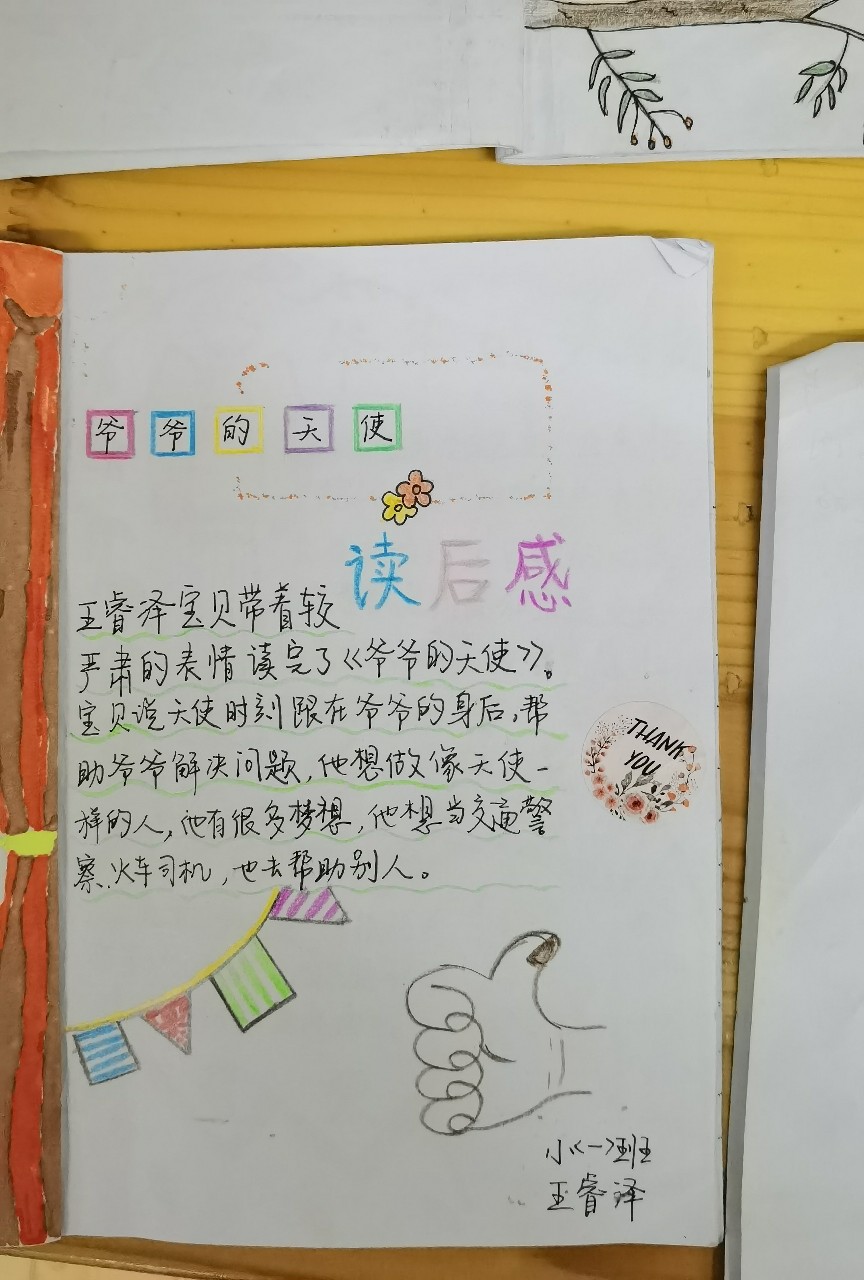 爷爷的天使
读后感
王睿泽宝贝带着较
严肃的表情读完了《爷爷的天使》。
宝贝说天使时刻跟在爷爷的身后，帮
助爷爷解决问题，他想做像天使一
样的人，他有很多梦想，他想当交通警
察、火车司机，也去帮助别人。
THANK
YOU
小〈一〉班
王睿泽